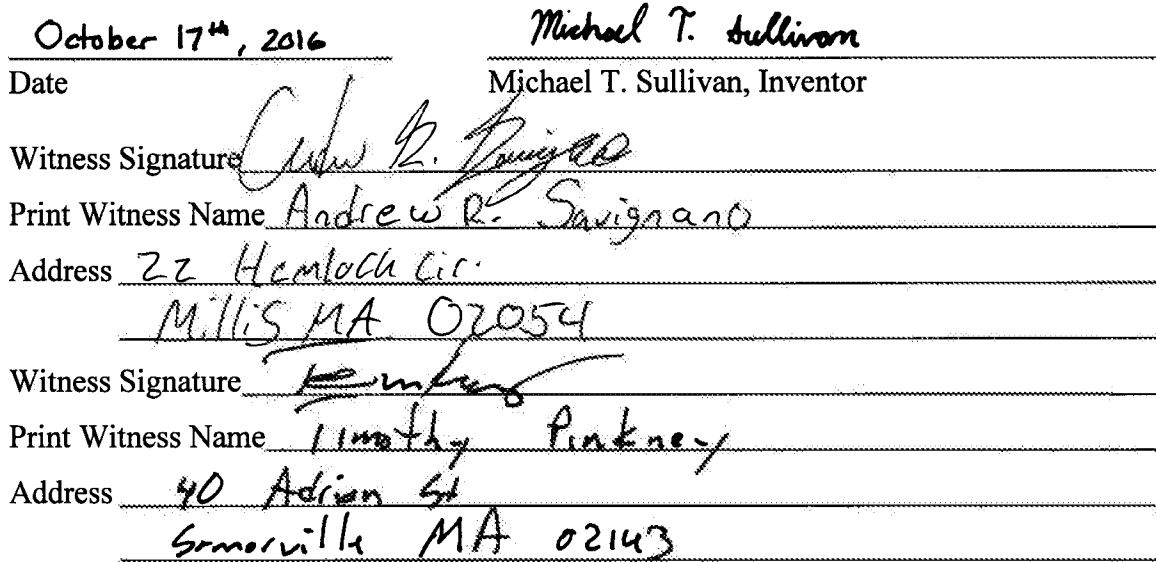 October 17th, 2016 Michael T. Sullivan
Date Michael T. Sullivan, Inventor
Witness Signature
Print Witness Name Andrew R. Savignano
Address 22 Hemlock Cir.
Millis MA 02054
Witness Signature
Print Witness Name Timothy Pinkney
Address 40 Adrian St
Somerville MA 02143